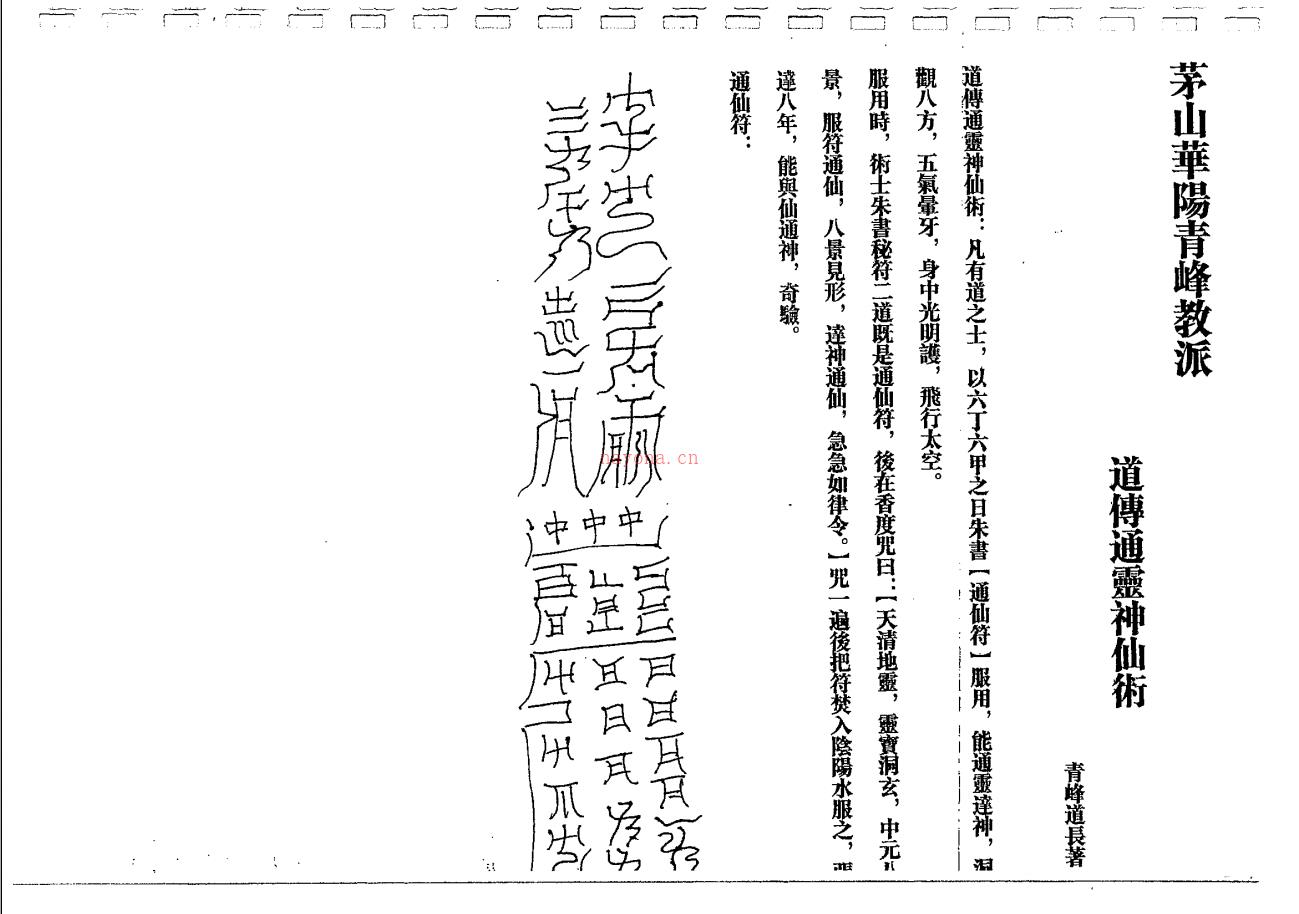 茅山華陽青峰教派
道傳通靈神仙術
青峰道長著
道傳通靈神仙術：凡有道之士，以六丁六甲之日朱書【通仙符】服用，能通靈達神，洞
觀八方，五氣暈牙，身中光明護，飛行太空。
服用時，術士朱書秘符二道既是通仙符，後在香度咒曰：【天清地靈，靈寶洞玄，中元八
景，服符通仙，八景見形，達神通仙，急急如律令。】咒一遍後把符焚入陰陽水服之，
達八年，能與仙通神，奇驗。
通仙符：
nayona.cn